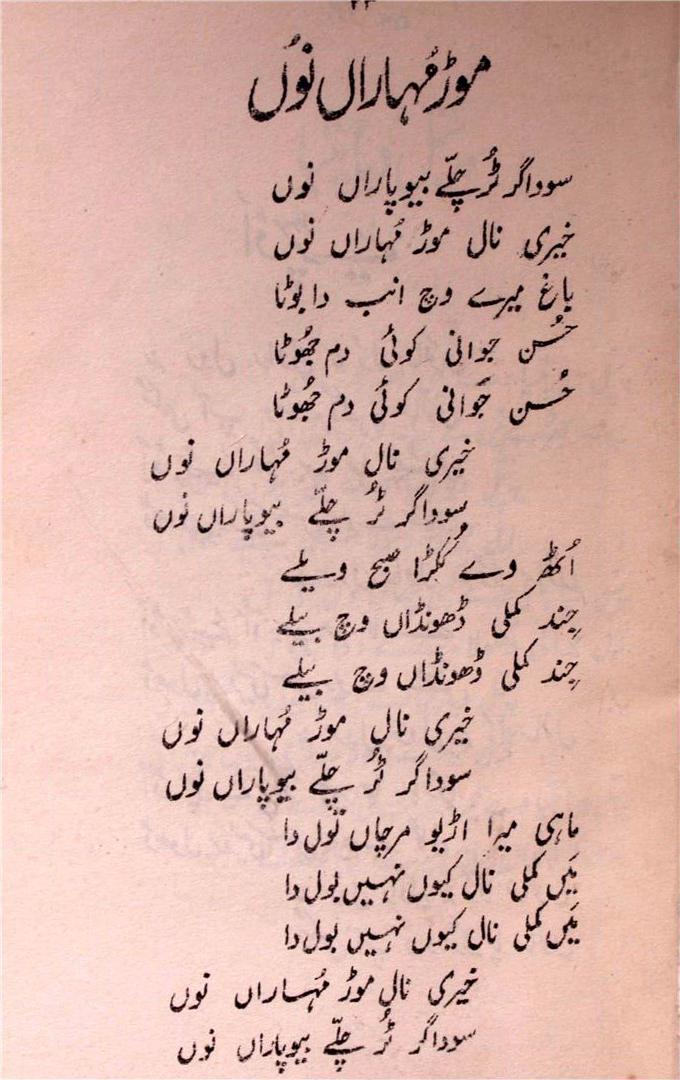 ۲۳
موڑ مُہاراں نوُں
سوداگر ٹُر چلّے بیوپاراں نوں
خیری نال موڑ مُہاراں نوں
باغ میرے وچ انب دا بوٹا
حُسن جوانی کوئی دم جھُوٹا
حُسن جَوانی کوئی دم جھُوٹا
خیری نال موڑ مُہاراں نوں
سوداگر ٹُر چلّے بیوپاراں نوں
اُٹھ وے کُکڑا صبح ویلے
جِند کملی ڈھونڈاں وچ بیلے
جِند کملی ڈھونڈاں وچ بیلے
خیری نال موڑ مُہاراں نوں
سوداگر ٹُر چلّے بیوپاراں نوں
ماہی میرا اڑیو مرچاں تول دا
مَیں کملی نال کیوں نہیں بول دا
مَیں کملی نال کیوں نہیں بول دا
خیری نال موڑ مُہاراں نوں
سوداگر ٹُر چلّے بیوپاراں نوں